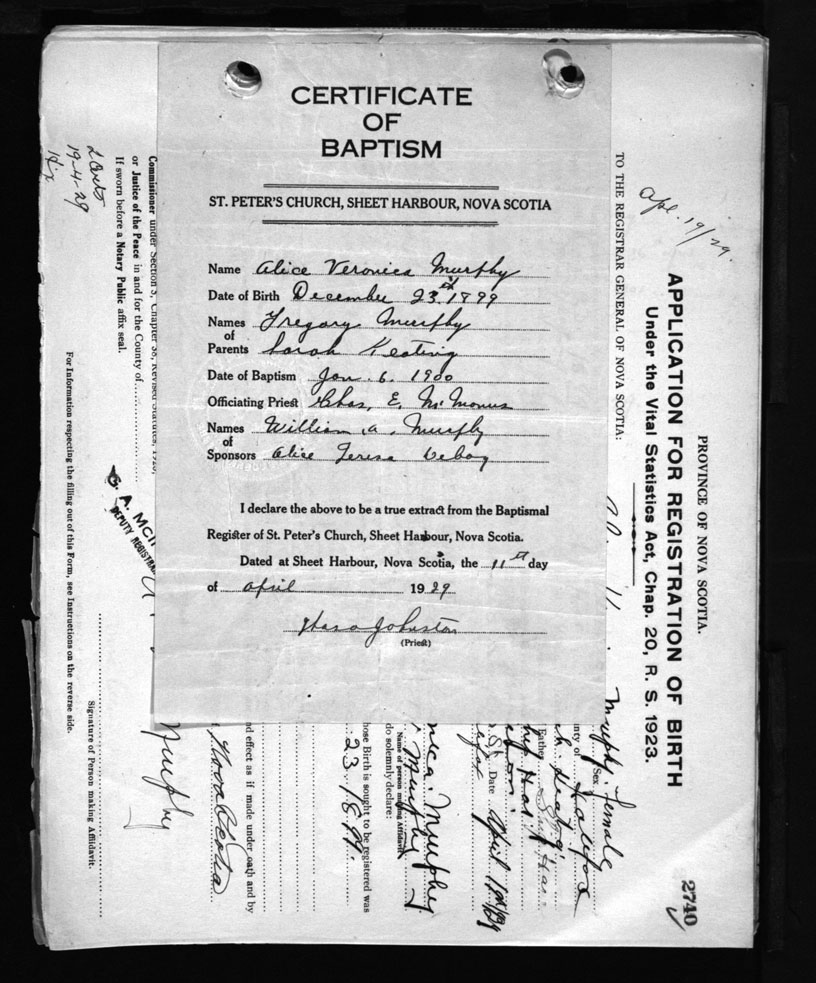 CERTIFICATE
OF
BAPTISM
ST. PETER'S CHURCH, SHEET HARBOUR, NOVA SCOTIA
Name Alice Veronica Murphy
Date of Birth December 23rd 1899
Names of Parents Gregory Murphy
Sarah Keating
Date of Baptism Jan. 6. 1900
Officiating Priest Chas. E. McManus
Names of Sponsors William A. Murphy
Alice Teresa
I declare the above to be a true extract from the Baptismal
Register of St. Peter's Church, Sheet Harbour, Nova Scotia.
Dated at Sheet Harbour, Nova Scotia, the 11th day
of April 1929
Johnston
(Priest)
Apl. 19/29.
PROVINCE OF NOVA SCOTIA.
APPLICATION FOR REGISTRATION OF BIRTH
Under the Vital Statistics Act, Chap. 20, R. S. 1923.
2740
TO THE REGISTRAR GENERAL OF NOVA SCOTIA:
Murphy. Female
Sex
Halifax
Father
Date April
Murphy
Name of person making Affidavit
do solemnly declare:
hose Birth is sought to be registered was
23. 1899.
nd effect as if made under oath and by
Nova Scotia
Murphy
G. A. McI
DEPUTY REGISTRAR
Commissioner under Section 3, Chapter 38, Revised Statutes, 1923,
or Justice of the Peace in and for the County of
If sworn before a Notary Public affix seal.
19-4-29
Signature of Person making Affidavit.
For Information respecting the filling out of this Form, see Instructions on the reverse side.